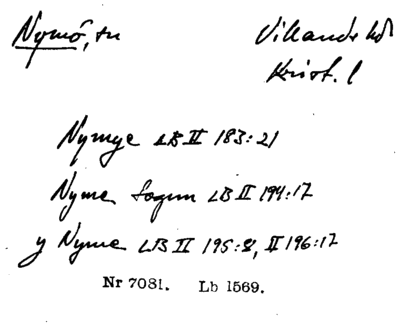 Nymö, sn Villands hd
Krist. l
Nymye LB II 183:21
Nyme sogen LB II 194:17
y Nyme LB II 195:8, II 196:17
Nr 7081. Lb 1569.